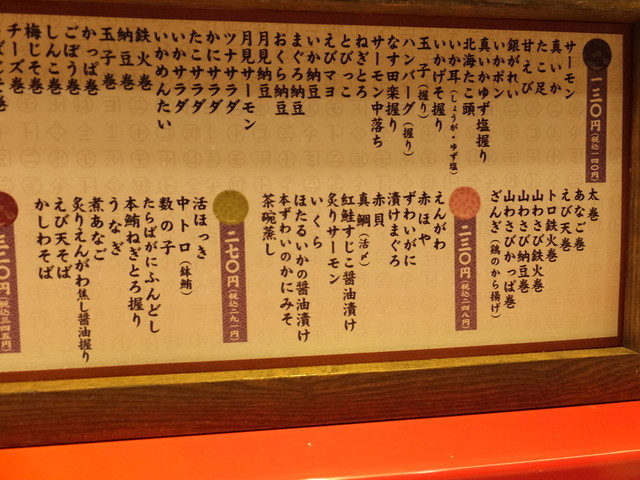 一三〇円(税込一四〇円)
サーモン
真いか
たこ足
甘えび
銀がれい
いかポン
真いかゆず塩握り
北海たこ頭
いか耳(しょうが・ゆず塩)
いかげそ握り
玉子(握り)
ハンバーグ(握り)
なす田楽握り
サーモン中落ち
ねぎとろ
とびっこ
えびマヨ
いか納豆
まぐろ納豆
おくら納豆
月見納豆
月見サーモン
ツナサラダ
かにサラダ
たこサラダ
いかサラダ
いかめんたい
鉄火巻
納豆巻
玉子巻
かっぱ巻
ごぼう巻
しんこ巻
梅じそ巻
チーズ巻
太巻
あなご巻
えび天巻
トロ鉄火巻
山わさび鉄火巻
山わさび納豆巻
山わさびかっぱ巻
ざんぎ(鶏のから揚げ)
二三〇円(税込二四八円)
えんがわ
赤ほや
ずわいがに
漬けまぐろ
赤貝
真鯛(活〆)
紅鮭すじこ醤油漬け
炙りサーモン
いくら
ほたるいかの醤油漬け
本ずわいのかにみそ
茶碗蒸し
二七〇円(税込二九一円)
活ほっき
中トロ(鉢鮪)
数の子
たらばがにふんどし
本鮪ねぎとろ握り
うなぎ
煮あなご
炙りえんがわ焦し醤油握り
えび天そば
かしわそば
三二〇円(税込三四五円)